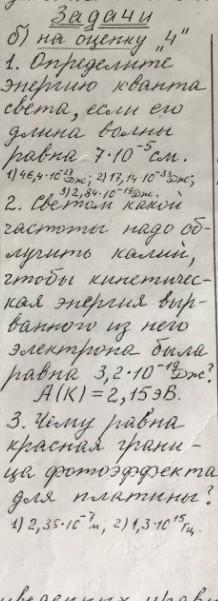 Задачи
б) на оценку "4"
1. Определите
энергию кванта
света, если его
длина волны
равна 7·10⁻⁵ см.
2. Светом какой
частоты надо об-
лучить калий,
чтобы кинетичес-
кая энергия выр-
ванного из него
электрона была
равна 3,2·10⁻¹⁹ Дж?
A(K) = 2,15 эВ.
3. Чему равна
красная грани-
ца фотоэффекта
для платины?
1) 2,35·10⁻⁷ м; 2) 1,3·10¹⁵ Гц.